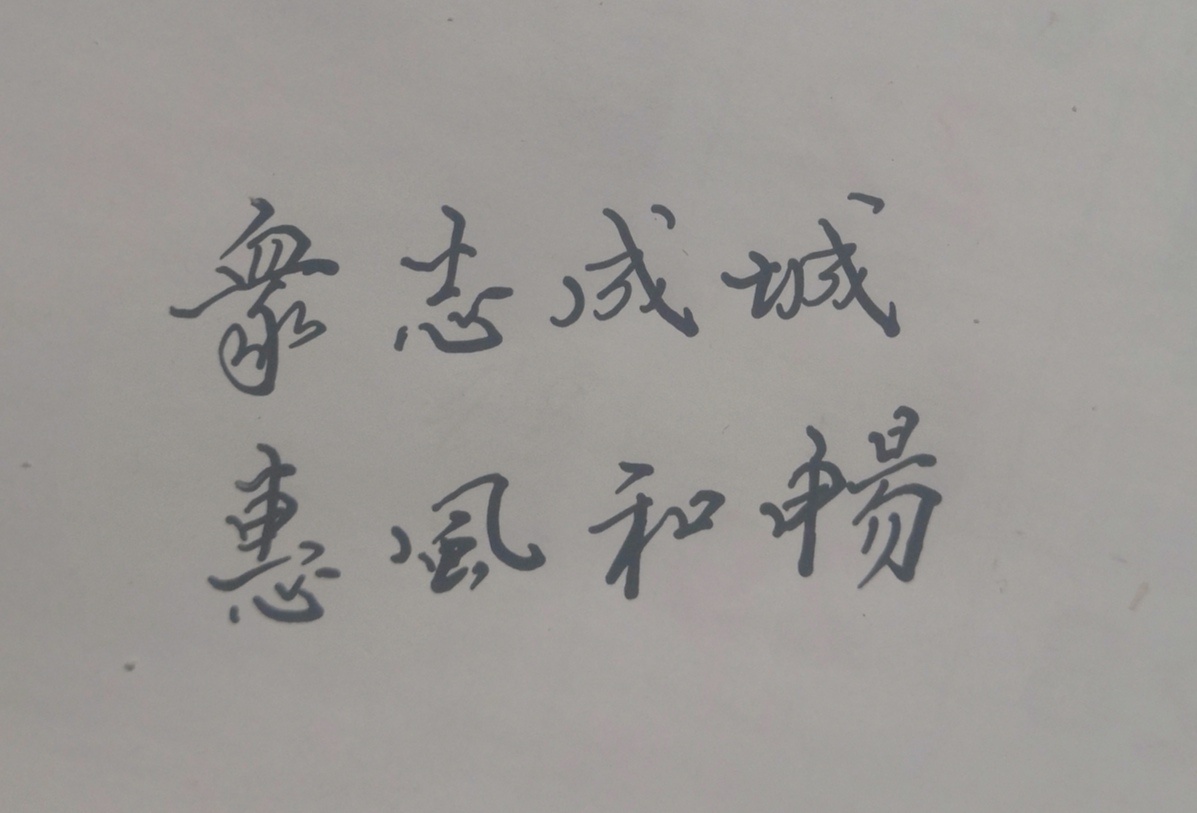 眾志成城
惠風和暢